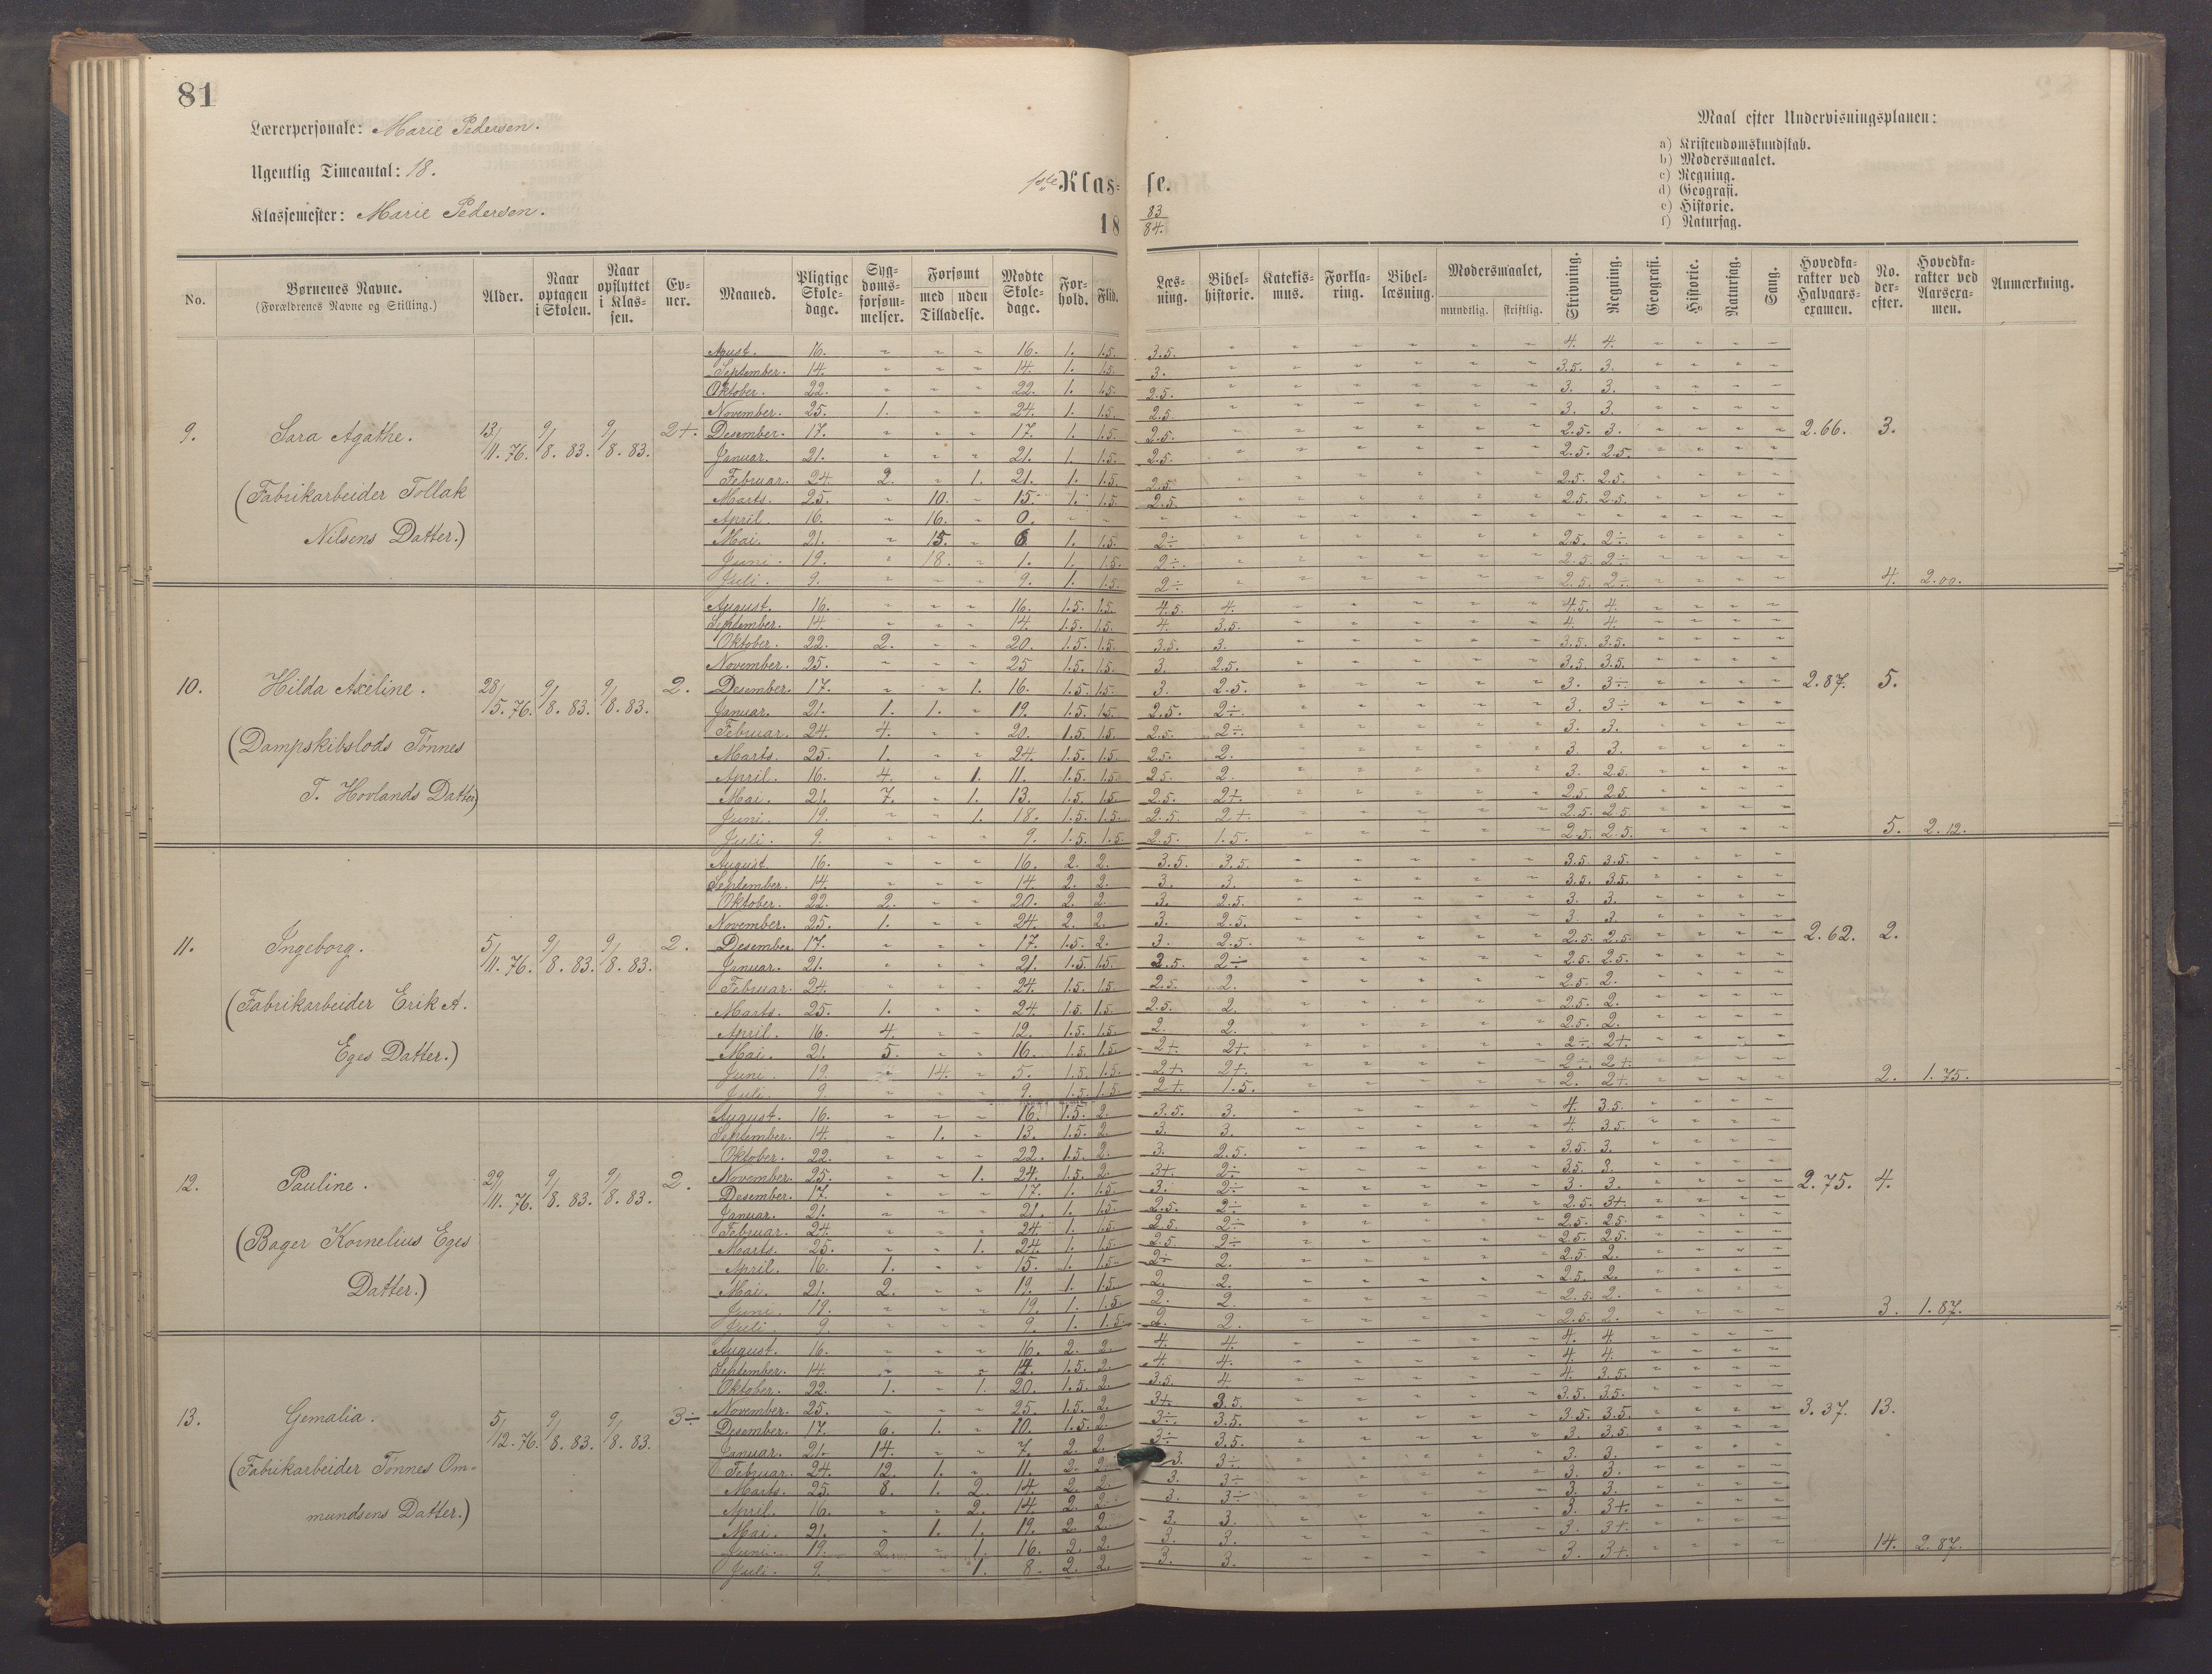 81
Lærerpersonale: Marie Pedersen.
Ugentlig Timeantal: 18.
Klassemester: Marie Pedersen.
1ste Klasse.
18 83/84.
Maal efter Undervisningsplanen:
a) Kristendomskundskab.
b) Modersmaalet.
c) Regning.
d) Geografi.
e) Historie.
f) Naturfag.
No. Børnenes Navne. (Forældrenes Navne og Stilling.) Alder. Naar optagen i Skolen. Naar opflyttet i Klassen. Evner. Maaned. Pligtige Skoledage. Sygdomsforsømmelser. Forsømt med uden Tilladelse. Mødte Skoledage. Forhold. Flid. Læsning. Bibelhistorie. Katekismus. Forklaring. Bibellæsning. Modersmaalet, mundtlig. skriftlig. Skrivning. Regning. Geografi. Historie. Naturfag. Sang. Hovedkarakter ved Halvaarsexamen. No. derefter. Hovedkarakter ved Aarsexamen. Anmærkning.
9. Sara Agathe. 13/11.76. 9/8.83. 9/8.83. 2+. 2.66. 3.
(Fabrikarbeider Tollak
Nilsens Datter.)
Agust. 16. " " " 16. 1. 1.5. 3.5. 4. 4.
September. 14. " " " 14. 1. 1.5. 3. 3.5. 3.
Oktober. 22. " " " 22. 1. 1.5. 2.5. 3. 3.
November. 25. 1. " " 24. 1. 1.5. 2.5. 3. 3.
Desember. 17. " " " 17. 1. 1.5. 2.5. 2.5. 3.
Januar. 21. " " " 21. 1. 1.5. 2.5. 2.5. 2.5.
Februar. 24. 2. " 1. 21. 1. 1.5. 2.5. 2.5. 2.5.
Marts. 25. " 10. " 15. 1. 1.5. 2.5. 2.5. 2.5.
April. 16. " 16. " 0. " "
Mai. 21. " 15. " 6 1. 1.5. 2÷ 2.5. 2÷
Juni. 19. " 18. " 1. 1. 1.5. 2÷. 2.5. 2÷.
Juli. 9. " " " 9. 1. 1.5. 2÷ 2.5. 2÷. 4. 2.00.
10. Hilda Axeline. 28/5.76. 9/8.83. 9/8.83. 2. 2.87. 5.
(Dampskibslods Tønnes
T. Hovlands Datter)
August. 16. " " " 16. 1.5. 1.5. 4.5. 4. 4.5. 4.
September. 14. " " " 14. 1.5. 1.5. 4. 3.5. 4. 4.
Oktober. 22. 2. " " 20. 1.5. 1.5. 3.5. 3. 3.5. 3.5.
November. 25. " " " 25 1.5. 1.5. 3. 2.5. 3.5. 3.5.
Desember. 17. " " 1. 16. 1.5. 1.5. 3. 2.5. 3. 3÷.
Januar. 21. 1. 1. " 19. 1.5. 1.5. 2.5. 2÷. 3. 3÷
Februar. 24. 4. " " 20. 1.5. 1.5. 2.5. 2÷. 3. 3.
Marts. 25. 1. " " 24. 1.5. 1.5. 2.5. 2. 3. 3.
April. 16. 4. " 1. 11. 1.5. 1.5. 2.5. 2. 3. 2.5.
Mai. 21. 7. " 1. 13. 1.5. 1.5. 2.5. 2+. 2.5. 2.5.
Juni. 19. " " 1. 18. 1.5. 1.5. 2.5. 2+. 2.5. 2.5.
Juli. 9. " " " 9. 1.5. 1.5. 2.5. 1.5. 2.5. 2.5. 5. 2.12.
11. Ingeborg. 5/11.76. 9/8.83. 9/8.83. 2. 2.62. 2.
(Fabrikarbeider Erik A.
Eges Datter.)
August 16. " " " 16. 2. 2. 3.5. 3.5. 3.5. 3.5.
September. 14. " " " 14. 2. 2. 3. 3. 3.5. 3.5.
Oktober. 22. 2. " " 20. 2. 2. 3. 2.5. 3. 3.
November. 25. 1. " " 24. 2. 2. 3. 2.5. 3. 3.
Desember. 17. " " " 17. 1.5. 2. 3. 2.5. 2.5. 2.5.
Januar. 21. " " " 21. 1.5. 1.5. 2.5. 2÷ 2.5. 2.5.
Februar. 24. " " " 24. 1.5. 1.5. 2.5. 2. 2.5. 2.
Marts. 25. 1. " " 24. 1.5. 1.5. 2.5. 2. 2.5. 2.
April. 16. 4. " " 12. 1.5. 1.5. 2. 2. 2.5. 2.
Mai. 21. 5. " " 16. 1.5. 1.5. 2+. 2+. 2÷. 2+.
Juni. 19. " 14. " 5. 1.5. 1.5. 2+. 2+. 2÷. 2+.
Juli. 9. " " " 9. 1.5. 1.5. 2+. 1.5. 2. 2+. 2. 1.75.
12. Pauline. 29/11.76. 9/8.83. 9/8.83. 2. 2.75. 4.
(Bager Kornelius Eges
Datter.)
August. 16. " " " 16. 1.5. 2. 3.5. 3. 4. 3.5.
September. 14. " 1. " 13. 1.5. 2. 3. 3. 4. 3.5.
Oktober. 22. " " " 22. 1.5. 2. 3. 2.5. 3.5. 3.
November. 25. " " 1. 24. 1.5. 2. 3+. 2÷. 3.5. 3.
Desember. 17. " " " 17. 1. 1.5. 3. 2÷ 3. 3.
Januar. 21. " " " 21. 1. 1.5. 2.5. 2÷ 2.5. 3+.
Februar. 24. " " " 24. 1. 1.5. 2.5. 2÷ 2.5. 2.5.
Marts. 25. " " 1. 24. 1. 1.5. 2.5. 2÷ 2.5. 2.5.
April. 16. 1. " " 15. 1. 1.5. 2÷ 2. 2.5. 2.
Mai. 21. 2. " " 19. 1. 1.5. 2. 2. 2.5. 2.
Juni. 19. " " " 19. 1. 1.5. 2. 2. 2.5. 2.
Juli. 9. " " " 9. 1. 1.5. 2. 2. 2.5. 2. 3. 1.87.
13. Gemalia. 5/12.76. 9/8.83. 9/8.83. 3÷ 3.37. 13.
(Fabrikarbeider Tønnes Om-
mundsens Datter.)
August. 16. " " " 16. 2. 2. 4. 4. 4. 4.
September. 14. " " " 14. 1.5. 2. 4. 4. 4. 4.
Oktober. 22. 1. " 1. 20. 1.5. 2. 3.5. 4 4. 3.5.
November. 25. " " " 25. 1.5. 2. 3+. 3.5. 3.5. 3.5.
Desember. 17. 6. 1. " 10. 1.5. 2. 3÷. 3.5. 3.5. 3.5.
Januar. 21. 14. " " 7. 2. 2. 3÷ 3.5. 3. 3.5
Februar. 24. 12. 1. " 11. 2. 2. 3. 3÷ 3. 3.
Marts. 25. 8. 1. 2. 14. 2. 2. 3. 3÷ 3. 3.
April. 16. " " 2. 14. 2. 2. 3. 3÷ 3. 3.
Mai. 21. " 1. 1. 19. 2. 2. 3. 3. 3. 3+.
Juni. 19. 2. " 1. 16. 2. 2. 3. 3. 3. 3+.
Juli. 9. " " 1. 8. 2. 2. 3. 3. 3. 3+. 14. 2.87.